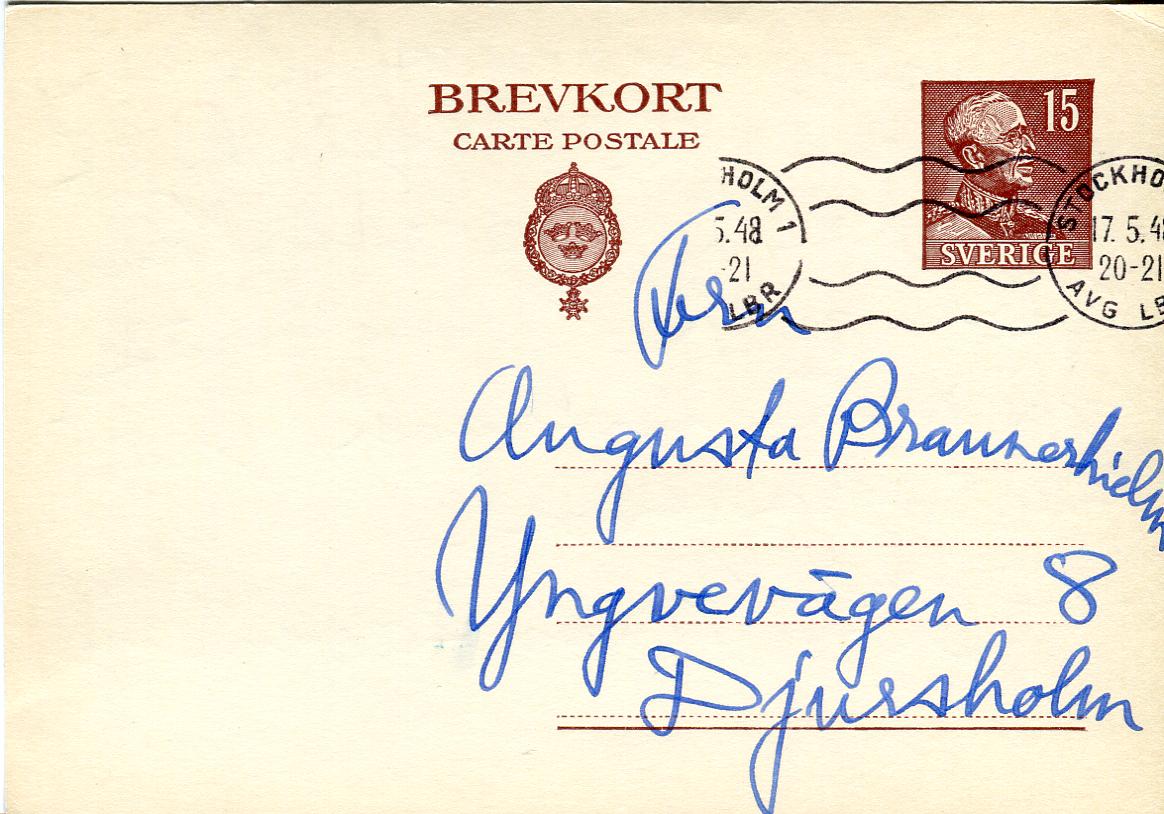 BREVKORT
CARTE POSTALE
15
SVERIGE
HOLM 1
5.48
-21
LBR
STOCKHO
17. 5. 48
20-21
AVG LB
Augusta Braunerhielm
Yngvevägen 8
Djursholm